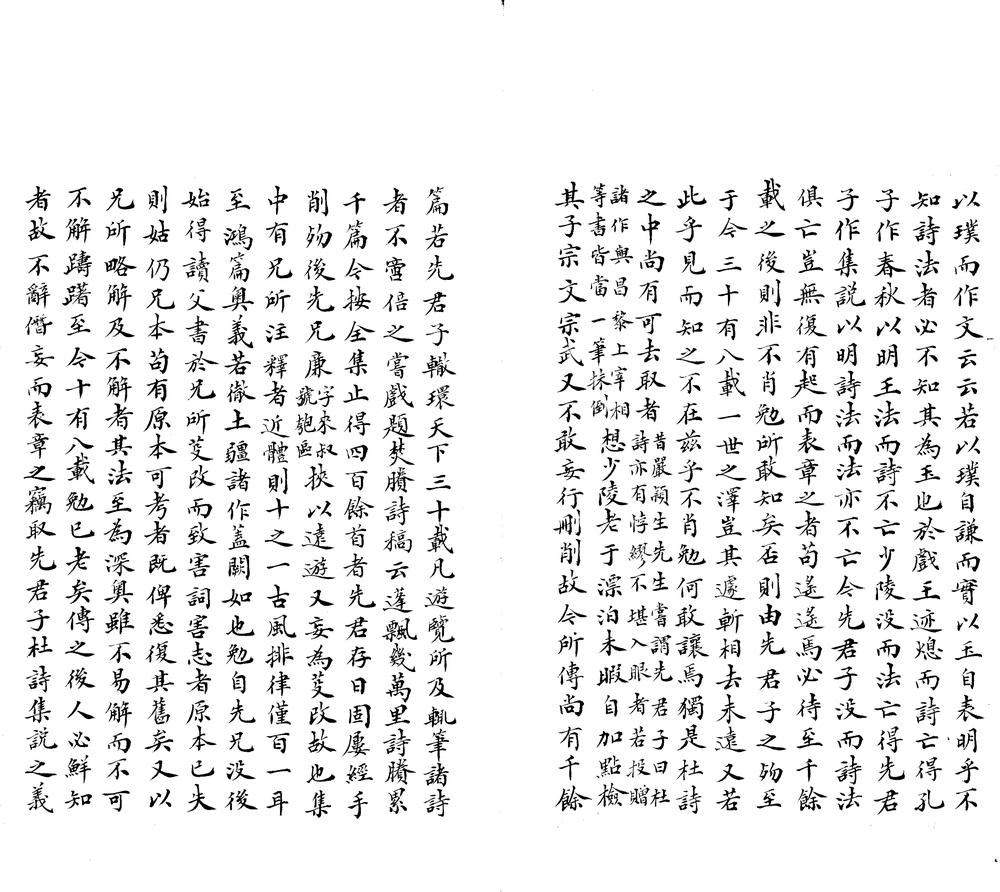 以璞而作文云云若以璞自謙而實以玉自表明乎不
知詩法者必不知其為玉也於戲王迹熄而詩亡得孔
子作春秋以明王法而詩不亡少陵没而法亡得先君
子作集説以明詩法而法亦不亡今先君子没而詩法
俱亡豈無復有起而表章之者苟遙遙焉必待至千餘
載之後則非不肖勉所敢知矣否則由先君子之歿至
于今三十有八載一世之澤豈其遽斬相去未遠又若
此乎見而知之不在兹乎不肖勉何敢讓焉獨是杜詩
之中尚有可去取者昔嚴潁生先生嘗謂先君子曰杜
詩亦有悖繆不堪入眼者若投贈
諸作與昌黎上宰相
等書皆當一筆抹倒想少陵老于漂泊未暇自加點檢
其子宗文宗武又不敢妄行刪削故今所傳尚有千餘
篇若先君子轍環天下三十載凡遊覽所及輒筆諸詩
者不啻倍之嘗戲題焚賸詩稿云蓬飄幾萬里詩賸累
千篇今按全集止得四百餘首者先君存日固屢經手
削歿後先兄廉字來叔
號匏區挾以遠遊又妄為芟改故也集
中有兄所注釋者近體則十之一古風排律僅百一耳
至鴻篇奧義若徹土疆諸作蓋闕如也勉自先兄没後
始得讀父書於兄所芟改而致害詞害志者原本已失
則姑仍兄本苟有原本可考者既俾悉復其舊矣又以
兄所略解及不解者其法至為深奧雖不易解而不可
不解躊躇至今十有八載勉已老矣傳之後人必鮮知
者故不辭僭妄而表章之竊取先君子杜詩集説之義